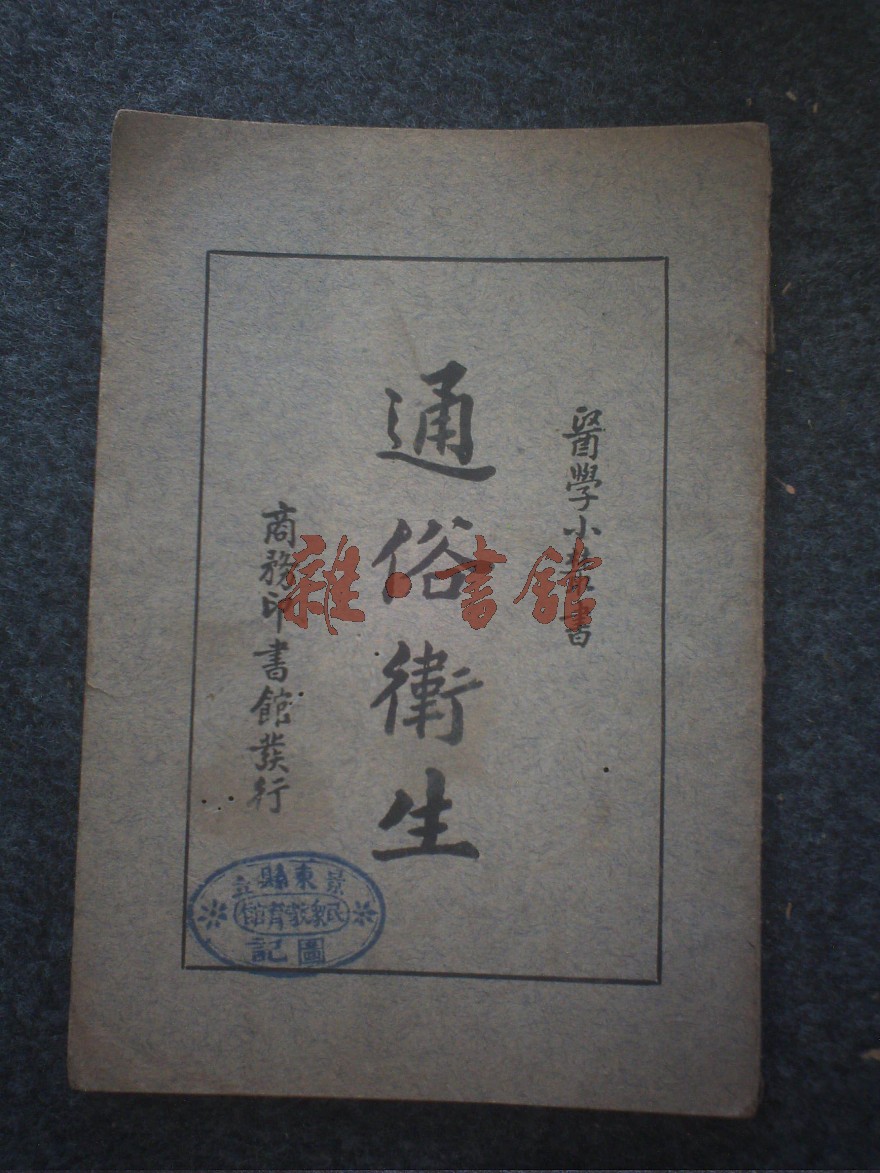 醫學小叢書
通俗衛生
商務印書館發行
景東縣立
民眾教育館
圖記
雜·書館